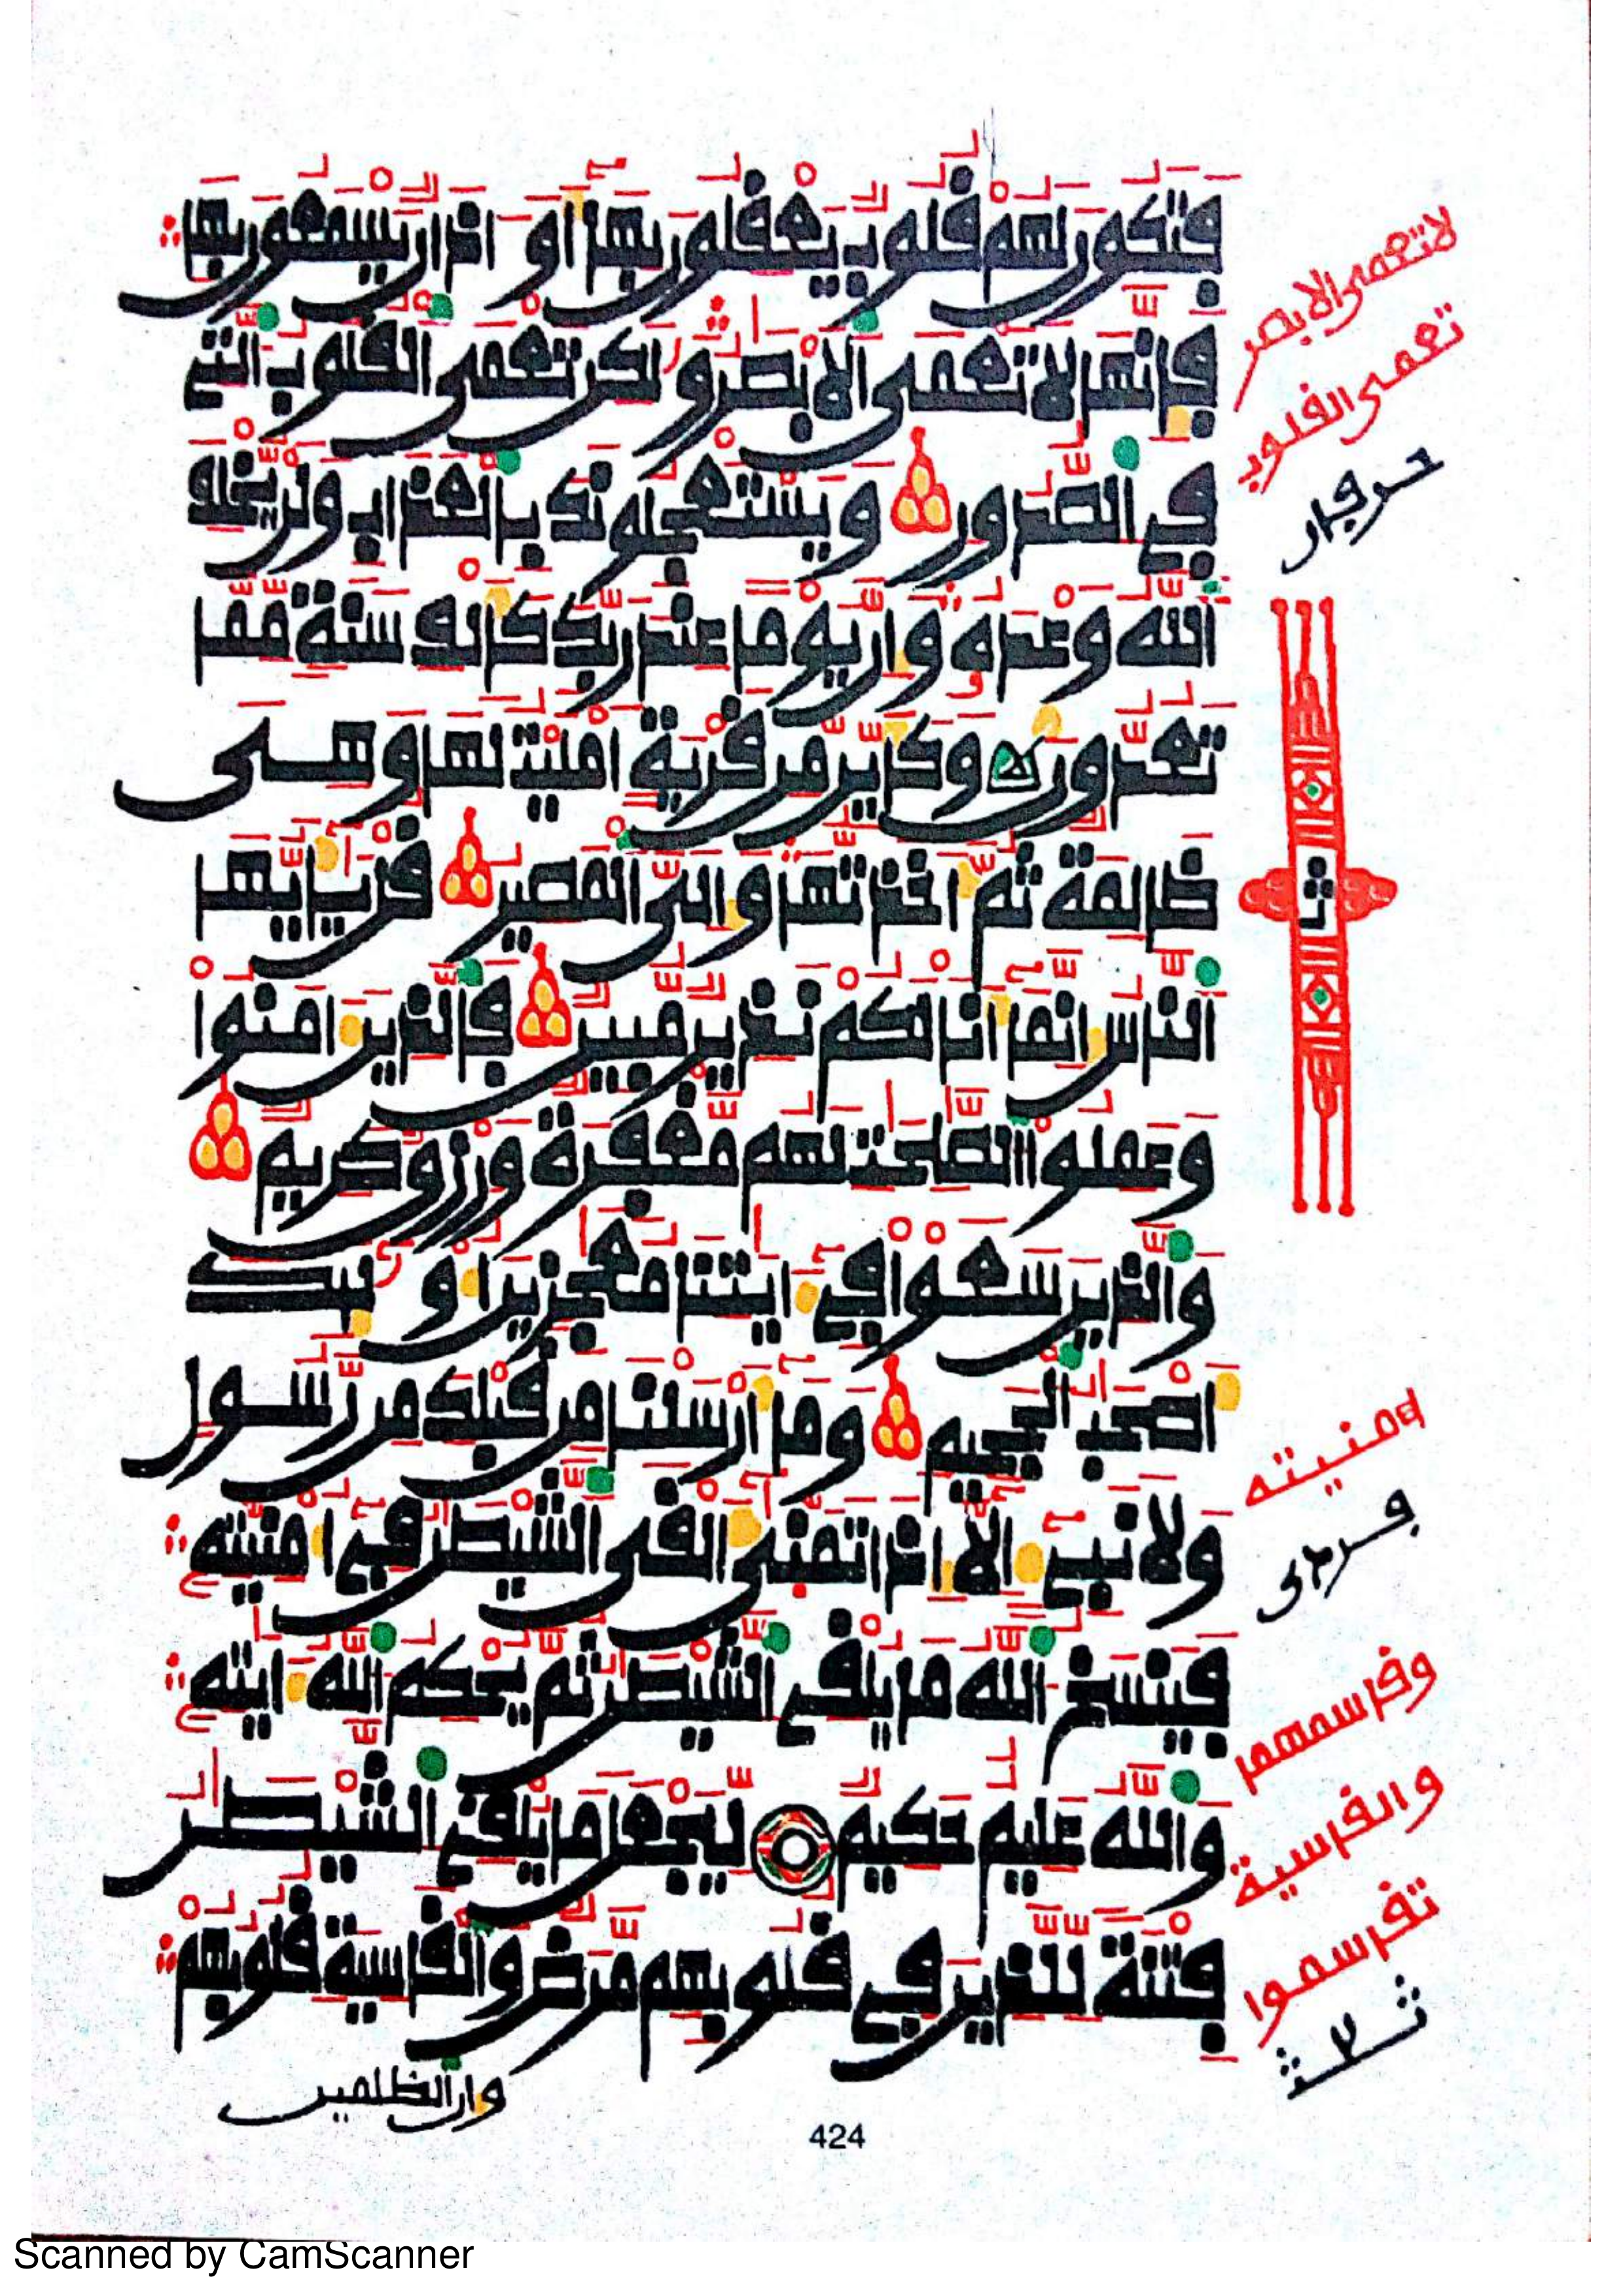 فتكون لهم قلوب يعقلون بها أو اذان يسمعون بها
فإنها لا تعمى الابصر ولكن تعمى القلوب التي
في الصدور ويستعجلونك بالعذاب ولن يخلف
الله وعده وإن يوما عند ربك كألف سنة مما
تعدون وكأين من قرية امليت لها وهي
ظالمة ثم أخذتها وإلى المصير قل يأيها
الناس إنما أنا لكم نذير مبين فالذين ءامنوا
وعملوا الصلحت لهم مغفرة ورزق كريم
والذين سعوا في ءايتنا معجزين أولئك
أصحب الجحيم وما أرسلنا من قبلك من رسول
ولا نبي إلا إذا تمنى ألقى الشيطن في أمنيته
فينسخ الله ما يلقي الشيطن ثم يحكم الله ءايته
والله عليم حكيم ليجعل ما يلقي الشيطن
فتنة للذين في قلوبهم مرض والقاسية قلوبهم
وإن الظلمين
لا تعمى الابصر
تعمى القلوب
حرفان
ثمن
امنيته
والقاسية
424
Scanned by CamScanner